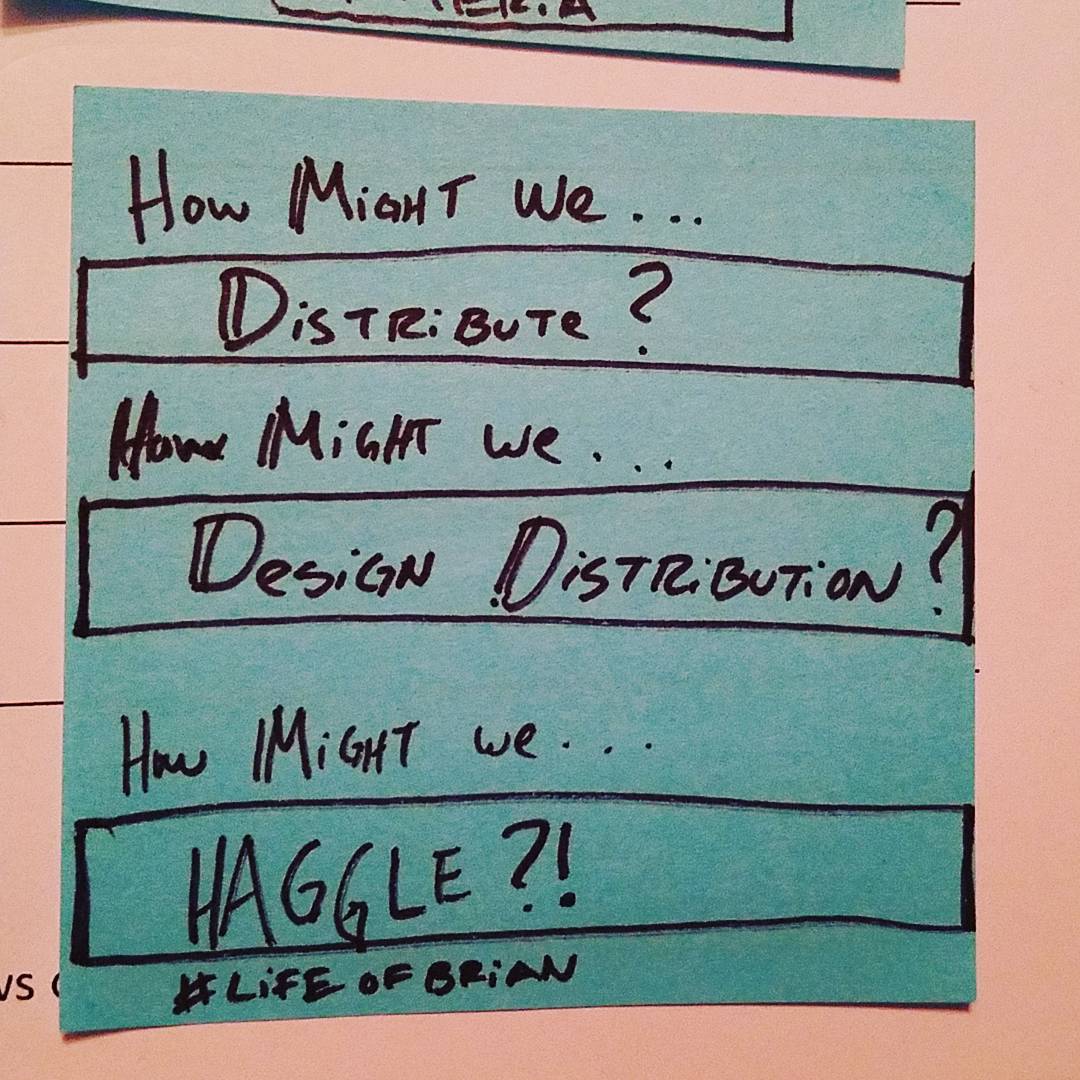 How Might We...
Distribute?
How Might We...
Design Distribution?
How Might We...
HAGGLE?!
#LIFEOFBRIAN